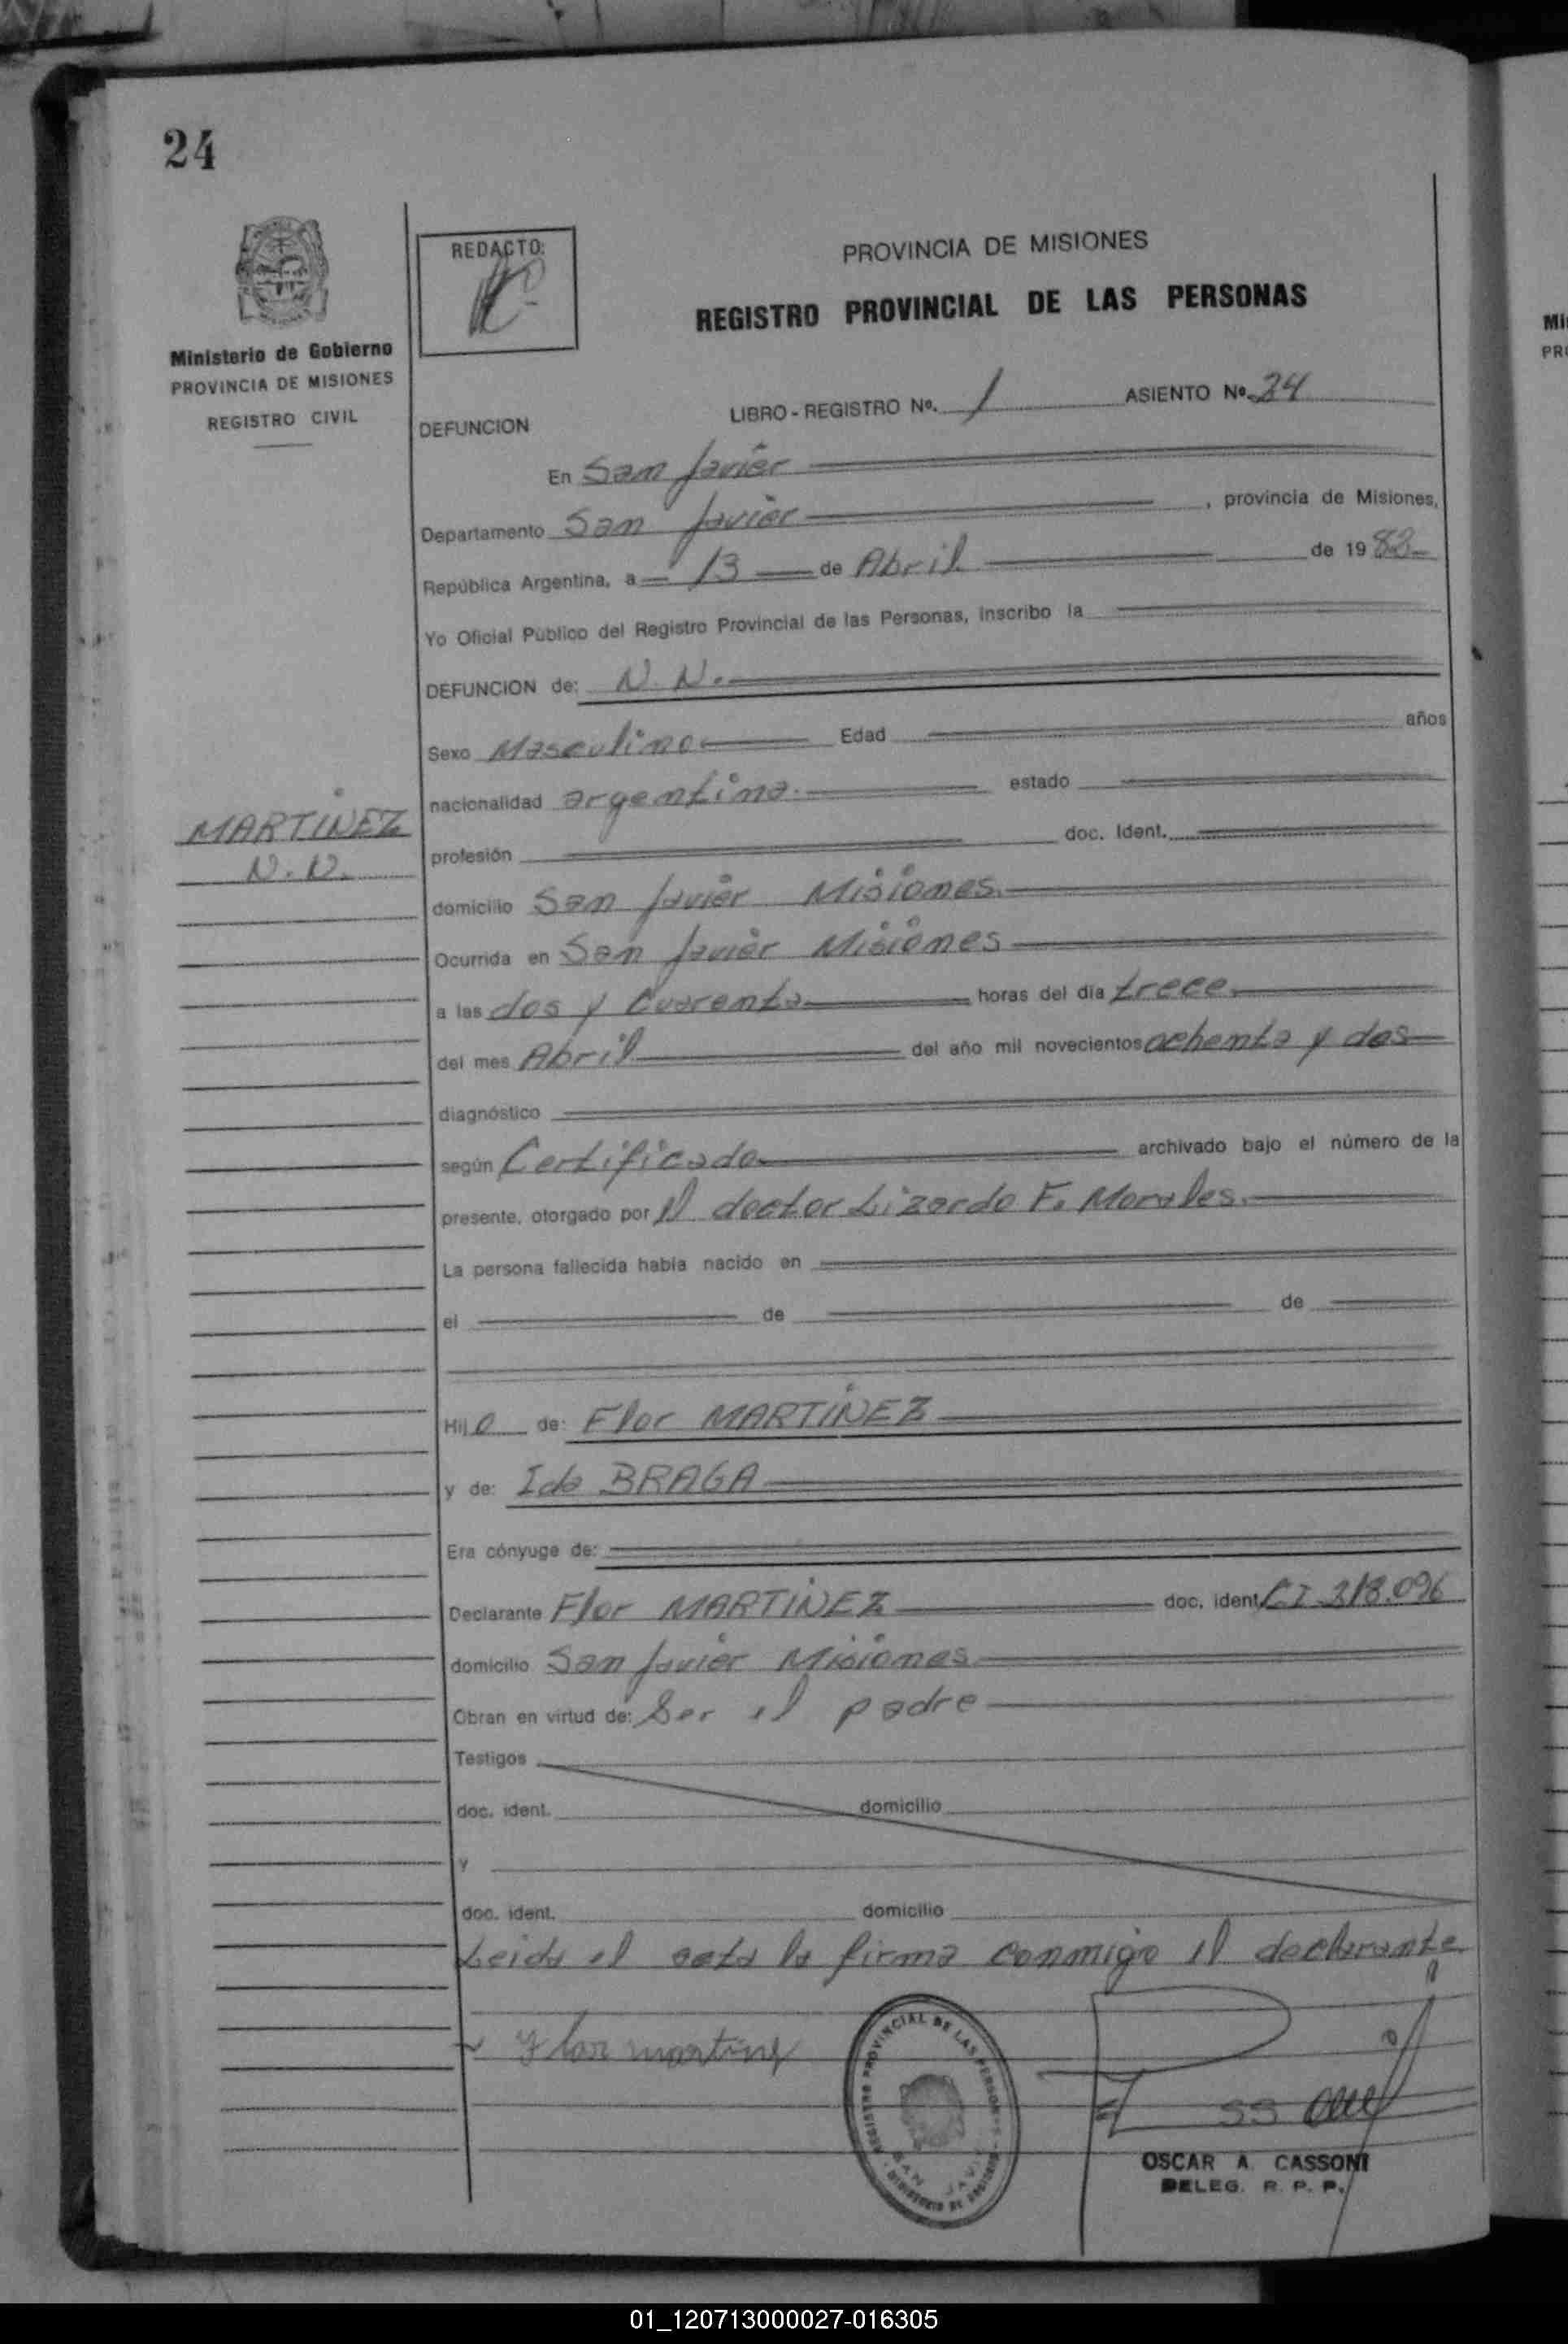 24
REDACTO:
PROVINCIA DE MISIONES
REGISTRO PROVINCIAL DE LAS PERSONAS
Ministerio de Gobierno
PROVINCIA DE MISIONES
REGISTRO CIVIL
LIBRO - REGISTRO Nº. 1 ASIENTO Nº. 24
DEFUNCION
En San Javier
Departamento San Javier , provincia de Misiones,
República Argentina, a 13 de Abril de 1982
Yo Oficial Público del Registro Provincial de las Personas, inscribo la
DEFUNCION de: N. N.
Sexo Masculino Edad años
nacionalidad argentina. estado
MARTINEZ
N. N.
profesión doc. Ident.
domicilio San Javier Misiones.
Ocurrida en San Javier Misiones
a las dos y Cuarenta horas del día trece
del mes Abril del año mil novecientos ochenta y dos
diagnóstico
según Certificado archivado bajo el número de la
presente, otorgado por el doctor Lizardo F. Morales.
La persona fallecida había nacido en
el de de
Hijo de: Flor MARTINEZ
y de: Ida BRAGA
Era cónyuge de:
Declarante Flor MARTINEZ doc. ident. CI 318.096
domicilio San Javier Misiones
Obran en virtud de: Ser el padre
Testigos
doc. ident. domicilio
y
doc. ident. domicilio
Leida el acta la firma conmigo el declarante
Flor martinez
REGISTRO PROVINCIAL DE LAS PERSONAS
SAN JAVIER
MINISTERIO DE GOBIERNO
OSCAR A. CASSONI
DELEG. R. P. P.
Mi
PR
01_120713000027-016305